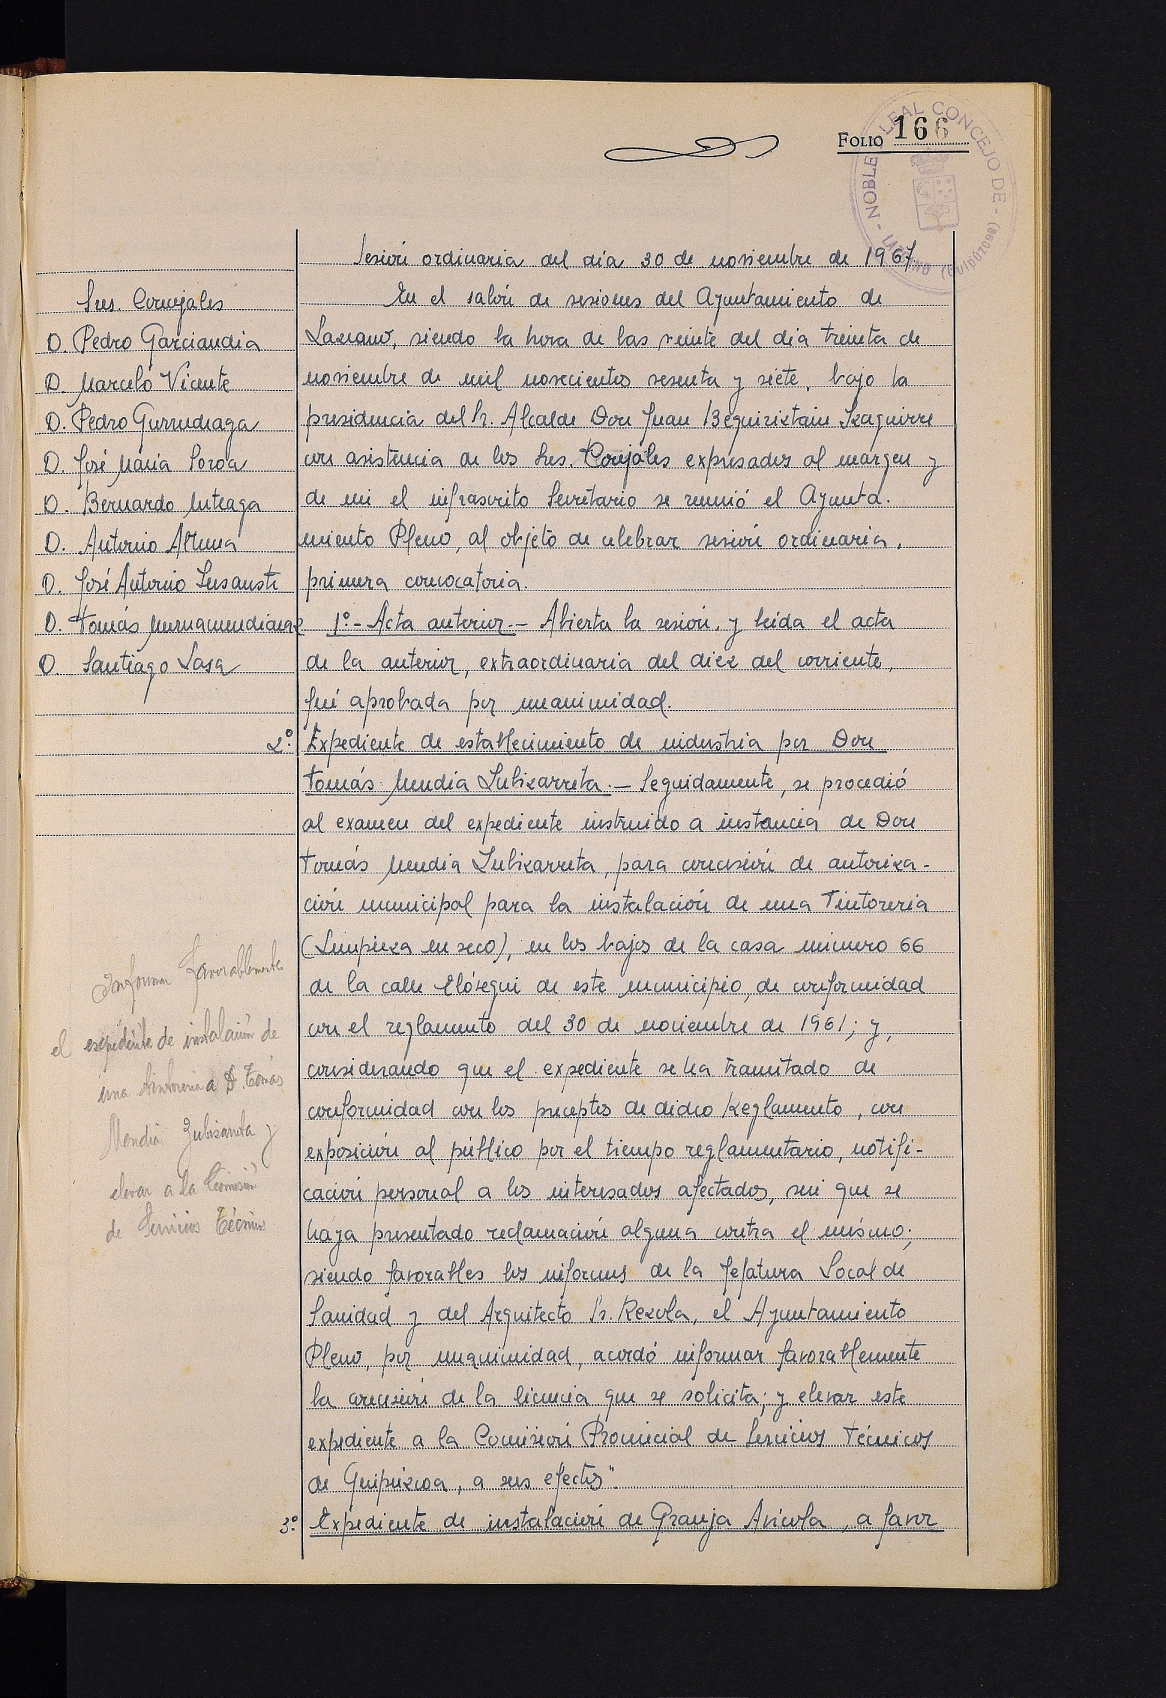 FOLIO 166
NOBLE Y LEAL CONCEJO DE - LAZCANO (GUIPÚZCOA) -
Sesión ordinaria del día 30 de noviembre de 1967
Sres. Concejales
D. Pedro Garciandia
D. Marcelo Vicente
D. Pedro Gurrudiaga
D. José María Soroa
D. Bernardo
D. Antonio
D. José Antonio
D. Tomás
D. Santiago Lasa
En el salón de sesiones del Ayuntamiento de
Lazcano, siendo la hora de las veinte del día treinta de
noviembre de mil novecientos sesenta y siete, bajo la
presidencia del Sr. Alcalde Don Juan Beguiristain Izaguirre
con asistencia de los Sres. Concejales expresados al margen y
de mi el infrascrito Secretario se reunió el Ayunta-
miento Pleno, al objeto de celebrar sesión ordinaria,
primera convocatoria.
1º.- Acta anterior.- Abierta la sesión, y leida el acta
de la anterior, extraordinaria del diez del corriente,
fué aprobada por unanimidad.
2º. Expediente de establecimiento de industria por Don
Tomás Mendia Zubizarreta.- Seguidamente, se procedió
al examen del expediente instruido a instancia de Don
Tomás Mendia Zubizarreta, para concesión de autoriza-
ción municipal para la instalación de una Tintorería
(Limpieza en seco), en los bajos de la casa número 66
de la calle Elósegui de este municipio, de conformidad
con el reglamento del 30 de noviembre de 1961; y,
considerando que el expediente se ha tramitado de
conformidad con los preceptos de dicho Reglamento, con
exposición al público por el tiempo reglamentario, notifi-
cación personal a los interesados afectados, sin que se
haya presentado reclamación alguna contra el mismo;
siendo favorables los informes de la Jefatura Local de
Sanidad y del Arquitecto Sr. Rezola, el Ayuntamiento
Pleno, por unanimidad, acordó informar favorablemente
la concesión de la licencia que se solicita; y elevar este
expediente a la Comisión Provincial de Servicios Técnicos
de Guipúzcoa, a sus efectos".
3º. Expediente de instalación de Granja Avícola, a favor
Informar favorablemente
el expediente de instalación de
una tintoreria a D. Tomás
Mendia Zubizarreta y
elevar a la Comisión
de Servicios Técnicos